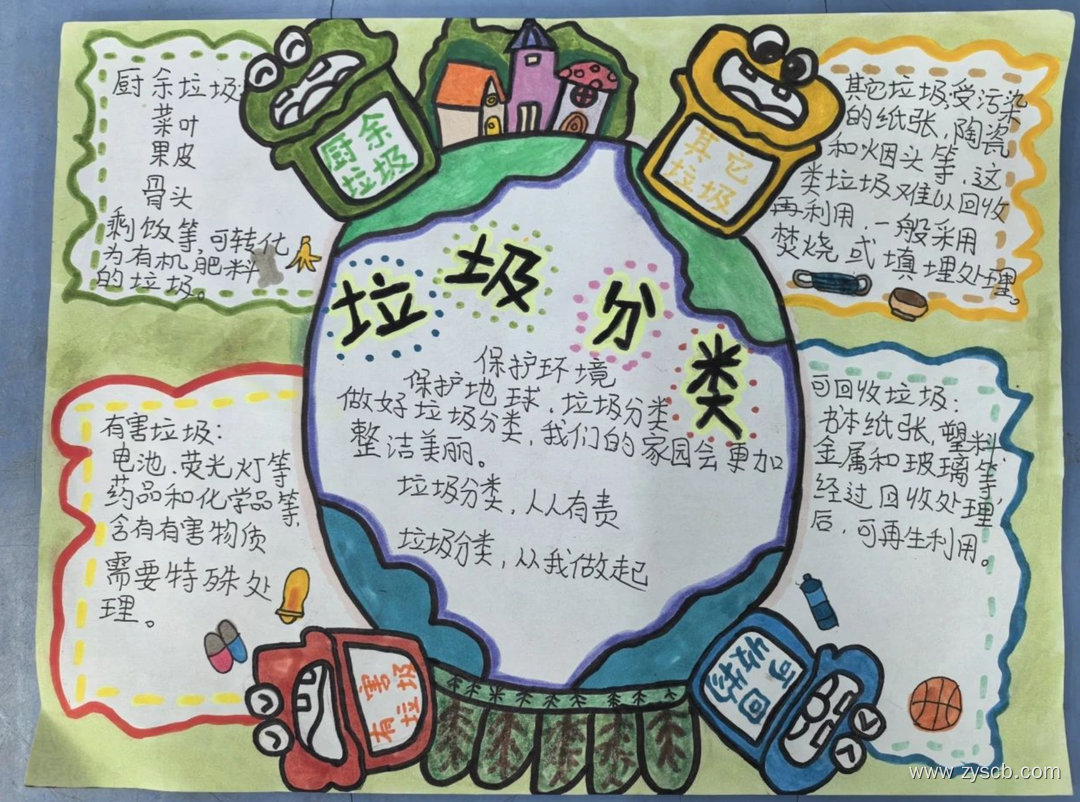 厨余垃圾
菜叶
果皮
骨头
剩饭等,可转化
为有机肥料
的垃圾。
厨余
垃圾
其它
垃圾
其它垃圾,受污染
的纸张,陶瓷
和烟头等,这
类垃圾难以回收
再利用,一般采用
焚烧或填埋处理。
垃圾分类
保护环境
保护地球,垃圾分类
做好垃圾分类,我们的家园会更加
整洁美丽。
垃圾分类,人人有责
垃圾分类,从我做起
有害垃圾:
电池,荧光灯等
药品和化学品等,
含有有害物质
需要特殊处
理。
可回收垃圾:
书本纸张,塑料,
金属和玻璃等,
经过回收处理
后,可再生利用。
有害
垃圾
可回
收物
www.zyscb.com